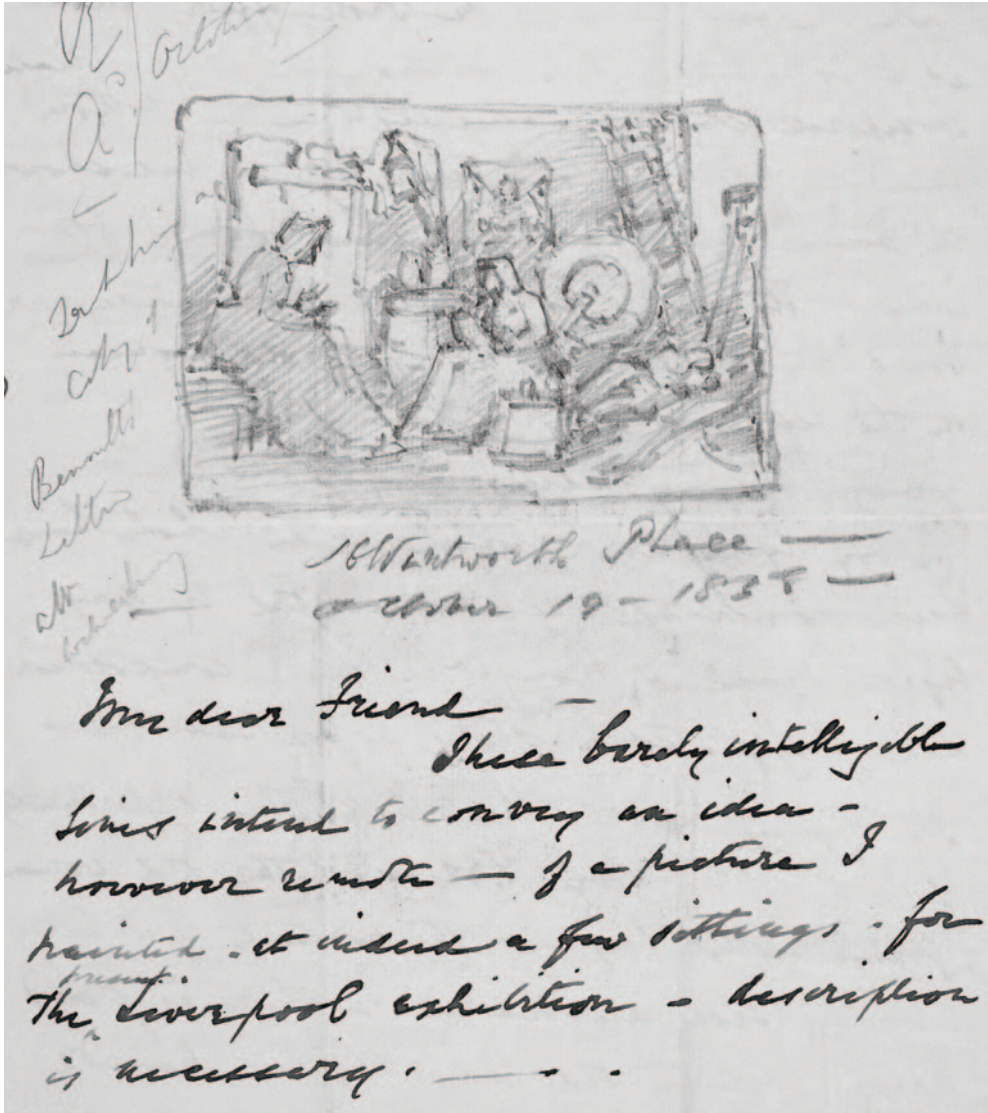 R
A's
October
copy of
Letter
Wentworth Place —
October 19 – 1838 —
My dear Friend –
These barely intelligible
lines intend to convey an idea –
however remote — of a picture I
painted . at indeed a few sittings . for
present.
The Liverpool exhibition – description
is necessary . — . .